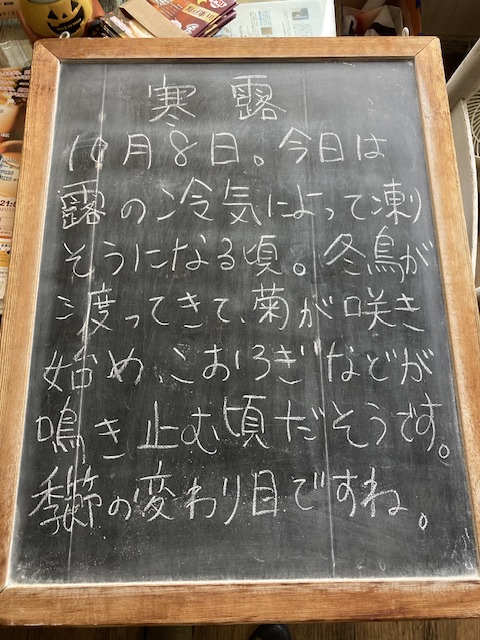 寒露
10月8日。今日は
露の冷気によって凍り
そうになる頃。冬鳥が
渡ってきて、菊が咲き
始め、こおろぎなどが
鳴き止む頃だそうです。
季節の変わり目ですね。